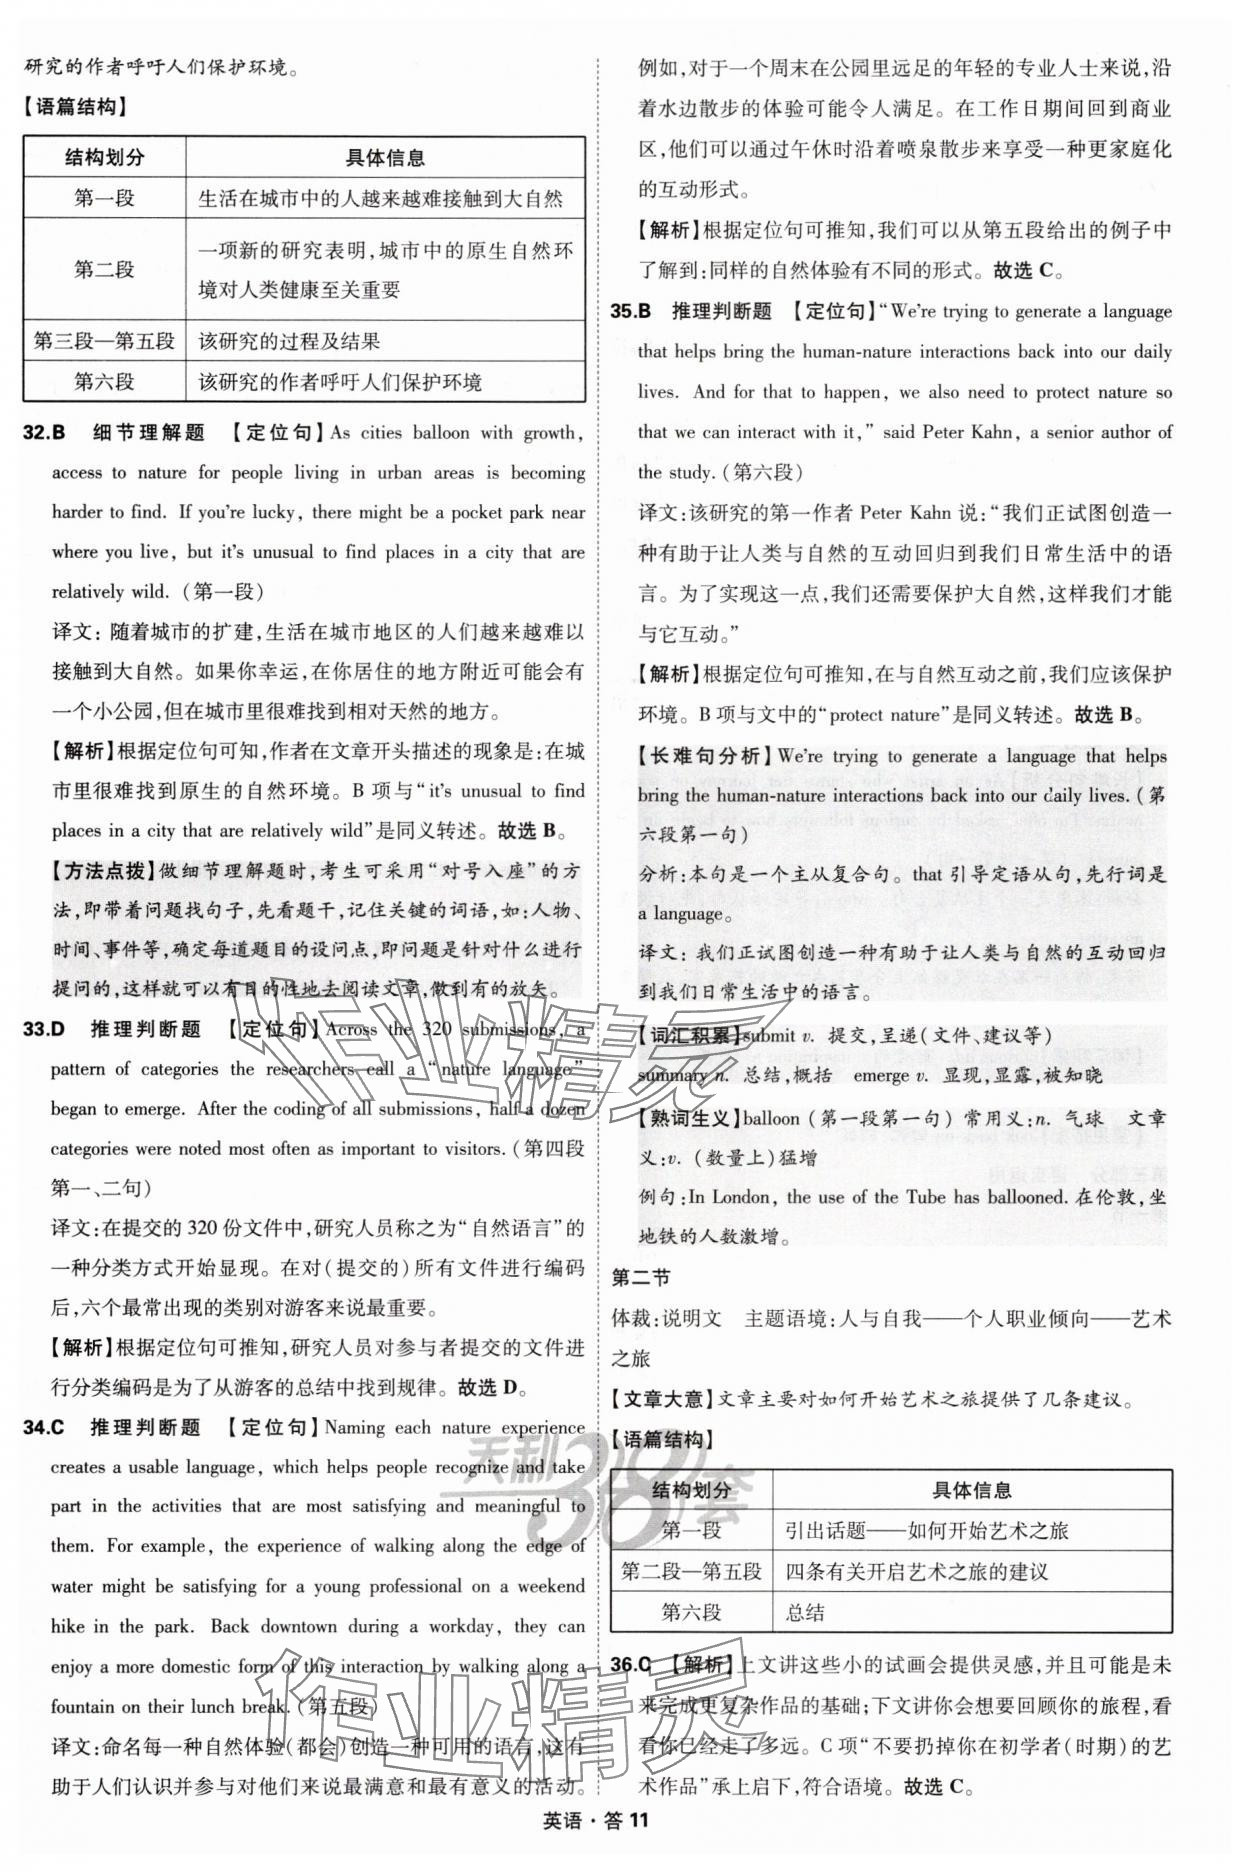 研究的作者呼吁人们保护环境。
【语篇结构】
结构划分 具体信息
第一段 生活在城市中的人越来越难接触到大自然
第二段 一项新的研究表明,城市中的原生自然环
境对人类健康至关重要
第三段—第五段 该研究的过程及结果
第六段 该研究的作者呼吁人们保护环境
32.B 细节理解题 【定位句】As cities balloon with growth,
access to nature for people living in urban areas is becoming
harder to find. If you're lucky, there might be a pocket park near
where you live, but it's unusual to find places in a city that are
relatively wild. (第一段)
译文: 随着城市的扩建,生活在城市地区的人们越来越难以
接触到大自然。如果你幸运,在你居住的地方附近可能会有
一个小公园,但在城市里很难找到相对天然的地方。
【解析】根据定位句可知,作者在文章开头描述的现象是:在城
市里很难找到原生的自然环境。B 项与“it's unusual to find
places in a city that are relatively wild”是同义转述。故选 B。
【方法点拨】做细节理解题时,考生可采用“对号入座”的方
法,即带着问题找句子,先看题干,记住关键的词语,如:人物、
时间、事件等,确定每道题目的设问点,即问题是针对什么进行
提问的,这样就可以有目的性地去阅读文章,做到有的放矢。
33.D 推理判断题 【定位句】Across the 320 submissions, a
pattern of categories the researchers call a “nature language”
began to emerge. After the coding of all submissions, half a dozen
categories were noted most often as important to visitors. (第四段
第一、二句)
译文:在提交的 320 份文件中,研究人员称之为“自然语言”的
一种分类方式开始显现。在对(提交的)所有文件进行编码
后,六个最常出现的类别对游客来说最重要。
【解析】根据定位句可推知,研究人员对参与者提交的文件进
行分类编码是为了从游客的总结中找到规律。故选 D。
34.C 推理判断题 【定位句】Naming each nature experience
creates a usable language, which helps people recognize and take
part in the activities that are most satisfying and meaningful to
them. For example, the experience of walking along the edge of
water might be satisfying for a young professional on a weekend
hike in the park. Back downtown during a workday, they can
enjoy a more domestic form of this interaction by walking along a
fountain on their lunch break. (第五段)
译文:命名每一种自然体验(都会)创造一种可用的语言,这有
助于人们认识并参与对他们来说最满意和最有意义的活动。
例如,对于一个周末在公园里远足的年轻的专业人士来说,沿
着水边散步的体验可能令人满足。在工作日期间回到商业
区,他们可以通过午休时沿着喷泉散步来享受一种更家庭化
的互动形式。
【解析】根据定位句可推知,我们可以从第五段给出的例子中
了解到:同样的自然体验有不同的形式。故选 C。
35.B 推理判断题 【定位句】“We're trying to generate a language
that helps bring the human-nature interactions back into our daily
lives. And for that to happen, we also need to protect nature so
that we can interact with it,” said Peter Kahn, a senior author of
the study. (第六段)
译文:该研究的第一作者 Peter Kahn 说:“我们正试图创造一
种有助于让人类与自然的互动回归到我们日常生活中的语
言。为了实现这一点,我们还需要保护大自然,这样我们才能
与它互动。”
【解析】根据定位句可推知,在与自然互动之前,我们应该保护
环境。B 项与文中的“protect nature”是同义转述。故选 B。
【长难句分析】We're trying to generate a language that helps
bring the human-nature interactions back into our daily lives. (第
六段第一句)
分析:本句是一个主从复合句。that 引导定语从句,先行词是
a language。
译文: 我们正试图创造一种有助于让人类与自然的互动回归
到我们日常生活中的语言。
【词汇积累】submit v. 提交,呈递(文件、建议等)
summary n. 总结,概括 emerge v. 显现,显露,被知晓
【熟词生义】balloon (第一段第一句) 常用义:n. 气球 文章
义:v. (数量上)猛增
例句:In London, the use of the Tube has ballooned. 在伦敦,坐
地铁的人数激增。
第二节
体裁:说明文 主题语境:人与自我——个人职业倾向——艺术
之旅
【文章大意】文章主要对如何开始艺术之旅提供了几条建议。
【语篇结构】
结构划分 具体信息
第一段 引出话题——如何开始艺术之旅
第二段—第五段 四条有关开启艺术之旅的建议
第六段 总结
36.C 【解析】上文讲这些小的试画会提供灵感,并且可能是未
来完成更复杂作品的基础;下文讲你会想要回顾你的旅程,看
看你已经走了多远。C 项“不要扔掉你在初学者(时期)的艺
术作品”承上启下,符合语境。故选 C。
英语·答 11
作业精灵
天利38套
作业精灵